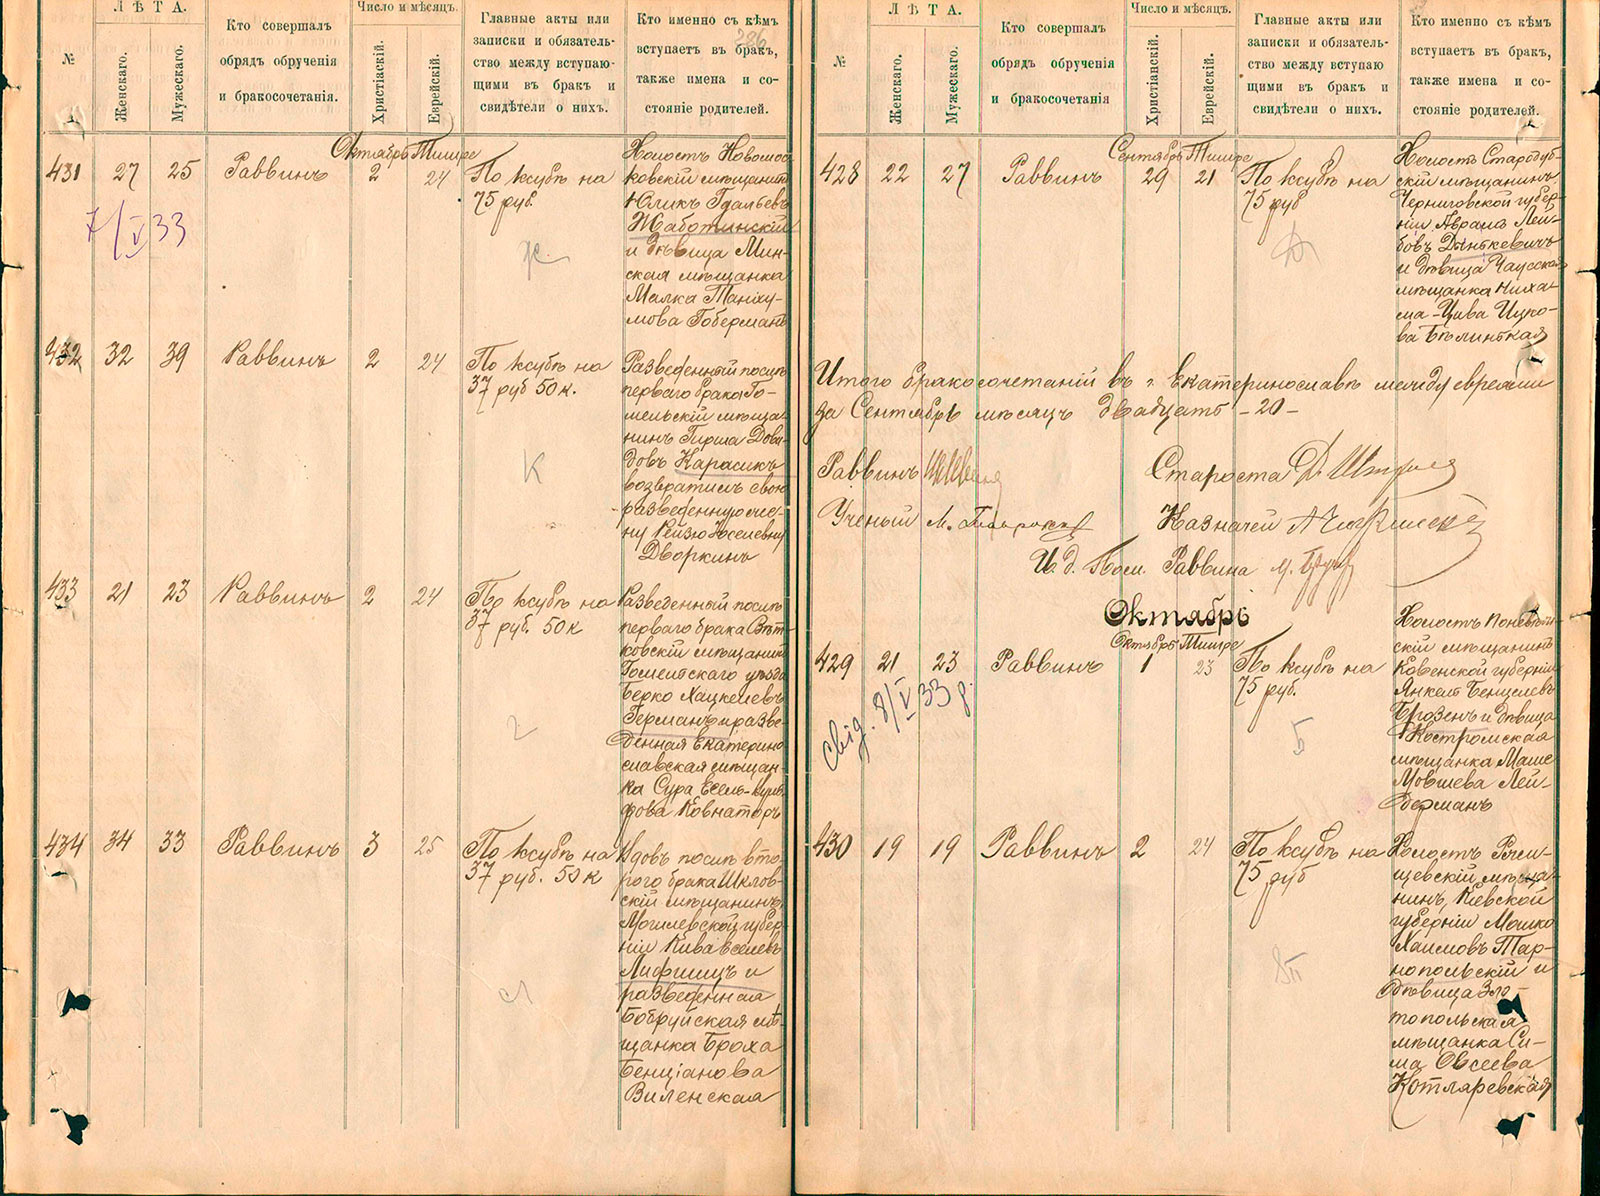 Л Ѣ Т А.
Число и мѣсяцъ.
№
Женскаго.
Мужескаго.
Кто совершалъ
обрядъ обрученія
и бракосочетанія.
Христіаскій.
Еврейскій.
Главные акты или
записки и обязатель-
ство между вступаю-
щими въ бракъ и
свидѣтели о нихъ.
Кто именно съ кѣмъ
вступаетъ въ бракъ,
также имена и со-
стояніе родителей.
286
Октябрь Тишре
431 27 25 Раввинъ 2 24
По ксубѣ на
75 руб.
Холостъ Новомос
ковскій мѣщанинъ
Юликъ Гдальевъ
Жаботинскій
и дѣвица Мин-
ская мѣщанка
Малка Танху-
мова Гоберманъ
7/V 33
ж.
432 32 39 Раввинъ 2 24
По ксубѣ на
37 руб 50 к.
Разведенный послѣ
перваго брака Го-
мельскій мѣща-
нинъ Гирша Дови-
довъ Карасикъ
возвратилъ свою
разведенную же-
ну Рейзю Іоселевну
Дворкинъ
К
433 21 23 Раввинъ 2 24
По ксубѣ на
37 руб. 50 к
Разведенный послѣ
перваго брака Вѣт-
ковскій мѣщанинъ
Гомельскаго уѣзда
Берко Хацкелевъ
Германъ и разве-
денная Екатерино
славская мѣщан-
ка Сура
Ковнаторъ
г
434 34 33 Раввинъ 3 25
По ксубѣ на
37 руб. 50 к
Вдовъ послѣ вто-
рого брака Шклов-
скій мѣщанинъ,
Могилевской губер-
ніи Кива
Лифшицъ и
разведенная
Бобруйская мѣ-
щанка Броха
Бенціанова
Виленская
л
Л Ѣ Т А.
Число и мѣсяцъ.
№
Женскаго.
Мужескаго.
Кто совершалъ
обрядъ обрученія
и бракосочетанія
Христіанскій.
Еврейскій.
Главные акты или
записки и обязатель-
ство между вступаю
щими въ бракъ и
свидѣтели о нихъ.
Кто именно съ кѣмъ
вступаетъ въ бракъ,
также имена и со-
стояніе родителей.
Сентябрь Тишре
428 22 27 Раввинъ 29 21
По ксубѣ на
75 руб
Холостъ Стародуб-
скій мѣщанинъ
Черниговской губер-
ніи Авраам Лей-
бовъ Данкевичъ
и дѣвица Чаусская
мѣщанкаНиха-
ма-Цива Ицко-
ва Бѣлинькая
Д
Итого бракосочетаній въ г. Екатеринославѣ между евреями
за Сентябрь мѣсяцъ двадцать -20-
Раввинъ
Староста Д.
Ученый М.
Казначей А
И. д. Пом. Раввина М.
Октябрь
Октябрь Тишре
429 21 23 Раввинъ 1 23
По ксубѣ на
75 руб.
Холостъ Поневѣж-
скій мѣщанинъ
Ковенской губерніи
Янкель Бенцелевъ
Брозенъ и дѣвица
Костромская
мѣщанка Маше
Мовшева Лей-
берманъ
свід. 8/V 33 р.
Б
430 19 19 Раввинъ 2 24
По ксубѣ на
75 руб
Холостъ Ржи-
щевскій мѣща-
нинъ, Кіевской
губерніи Мошко
Хаимовъ Тар-
нопольскій и
дѣвица Зла-
топольская
мѣщанка Си-
ма Овсеева
Котляревская